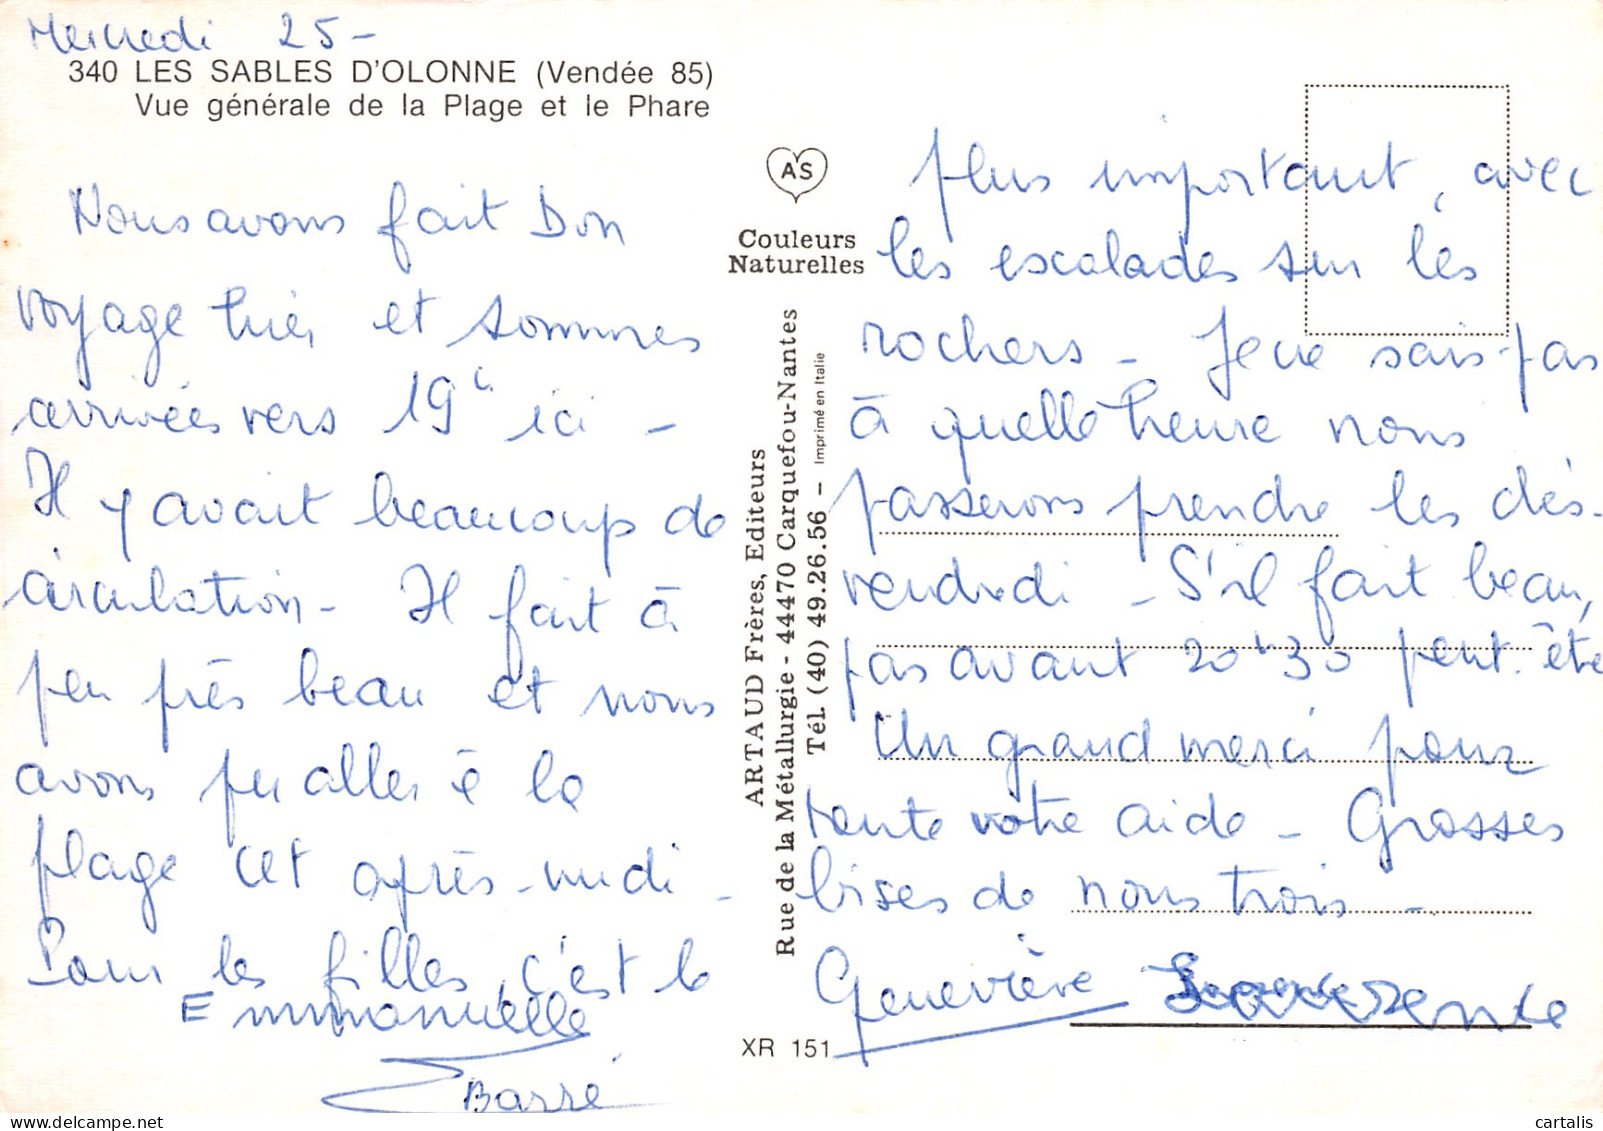 Mercredi 25-
340 LES SABLES D'OLONNE (Vendée 85)
Vue générale de la Plage et le Phare
Nous avons fait bon
voyage hier et sommes
arrivées vers 19h ici -
Il y avait beaucoup de
circulation - Il fait à
peu près beau et nous
avons pu aller à la
plage cet après-midi -
Pour les filles, c'est le
Emmanuelle
Barré
AS
Couleurs
Naturelles
ARTAUD Frères, Editeurs
Rue de la Métallurgie - 44470 Carquefou-Nantes
Tél. (40) 49.26.56 - Imprimé en Italie
XR 151
plus important, avec
les escalades sur les
rochers - Je ne sais pas
à quelle heure nous
passerons prendre les clés
vendredi - S'il fait beau,
pas avant 20h30 peut-être
Un grand merci pour
toute votre aide - Grosses
bises de nous trois -
Geneviève
cartalis
www.delcampe.net